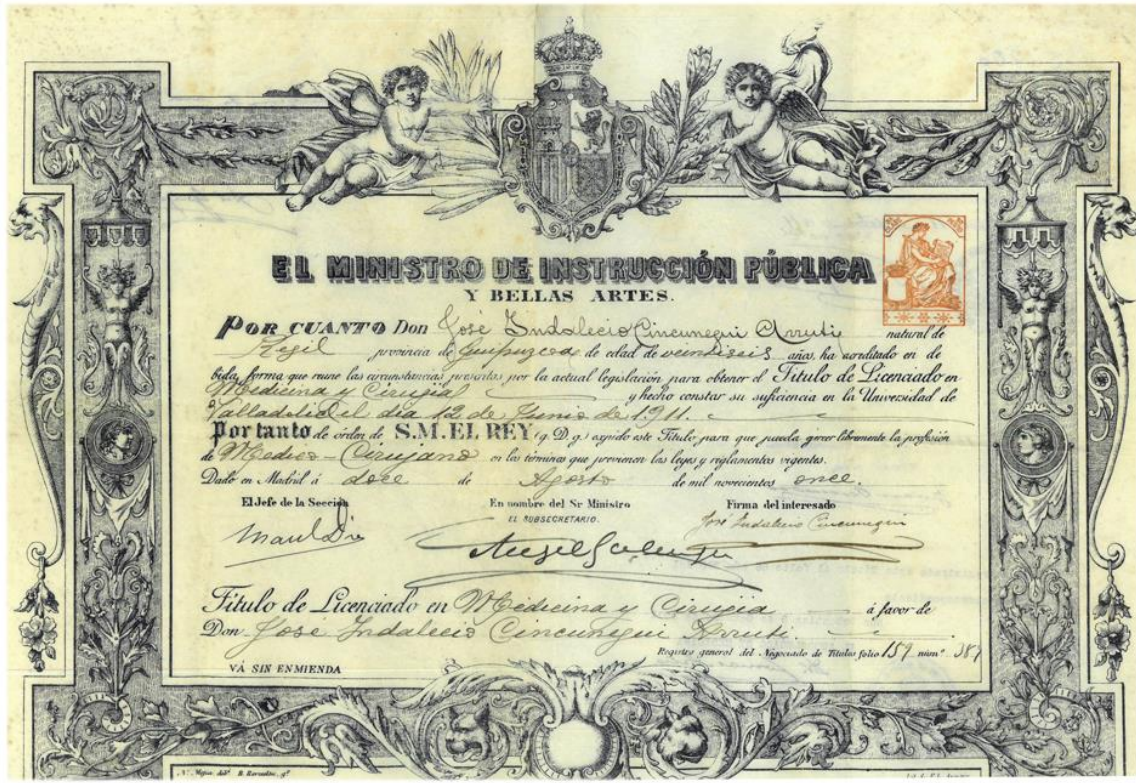 EL MINISTRO DE INSTRUCCIÓN PÚBLICA
Y BELLAS ARTES.
POR CUANTO Don José Indalecio Cincunegui Arruti natural de
Régil provincia de Guipuzcoa de edad de veintiseis años, ha acreditado en de
bida forma que reune las circunstancias prescritas por la actual legislación para obtener el Titulo de Licenciado en
Medicina y Cirujia y hecho constar su suficiencia en la Universidad de
Valladolid el dia 12 de Junio de 1.911.
Por tanto de órden de S.M. EL REY (q. D. g.) expido este Titulo para que pueda ejercer libremente la profesión
de Médico-Cirujano en los términos que previenen las leyes y reglamentos vigentes.
Dado en Madrid á doce de Agosto de mil novecientos once.
El Jefe de la Sección
En nombre del Sr Ministro
EL SUBSECRETARIO.
Firma del interesado
José Indalecio Cincunegui
Titulo de Licenciado en Medicina y Cirujia á favor de
Don José Indalecio Cincunegui Arruti.
Registro general del Negociado de Titulos folio 157 núm.º 387
VÁ SIN ENMIENDA